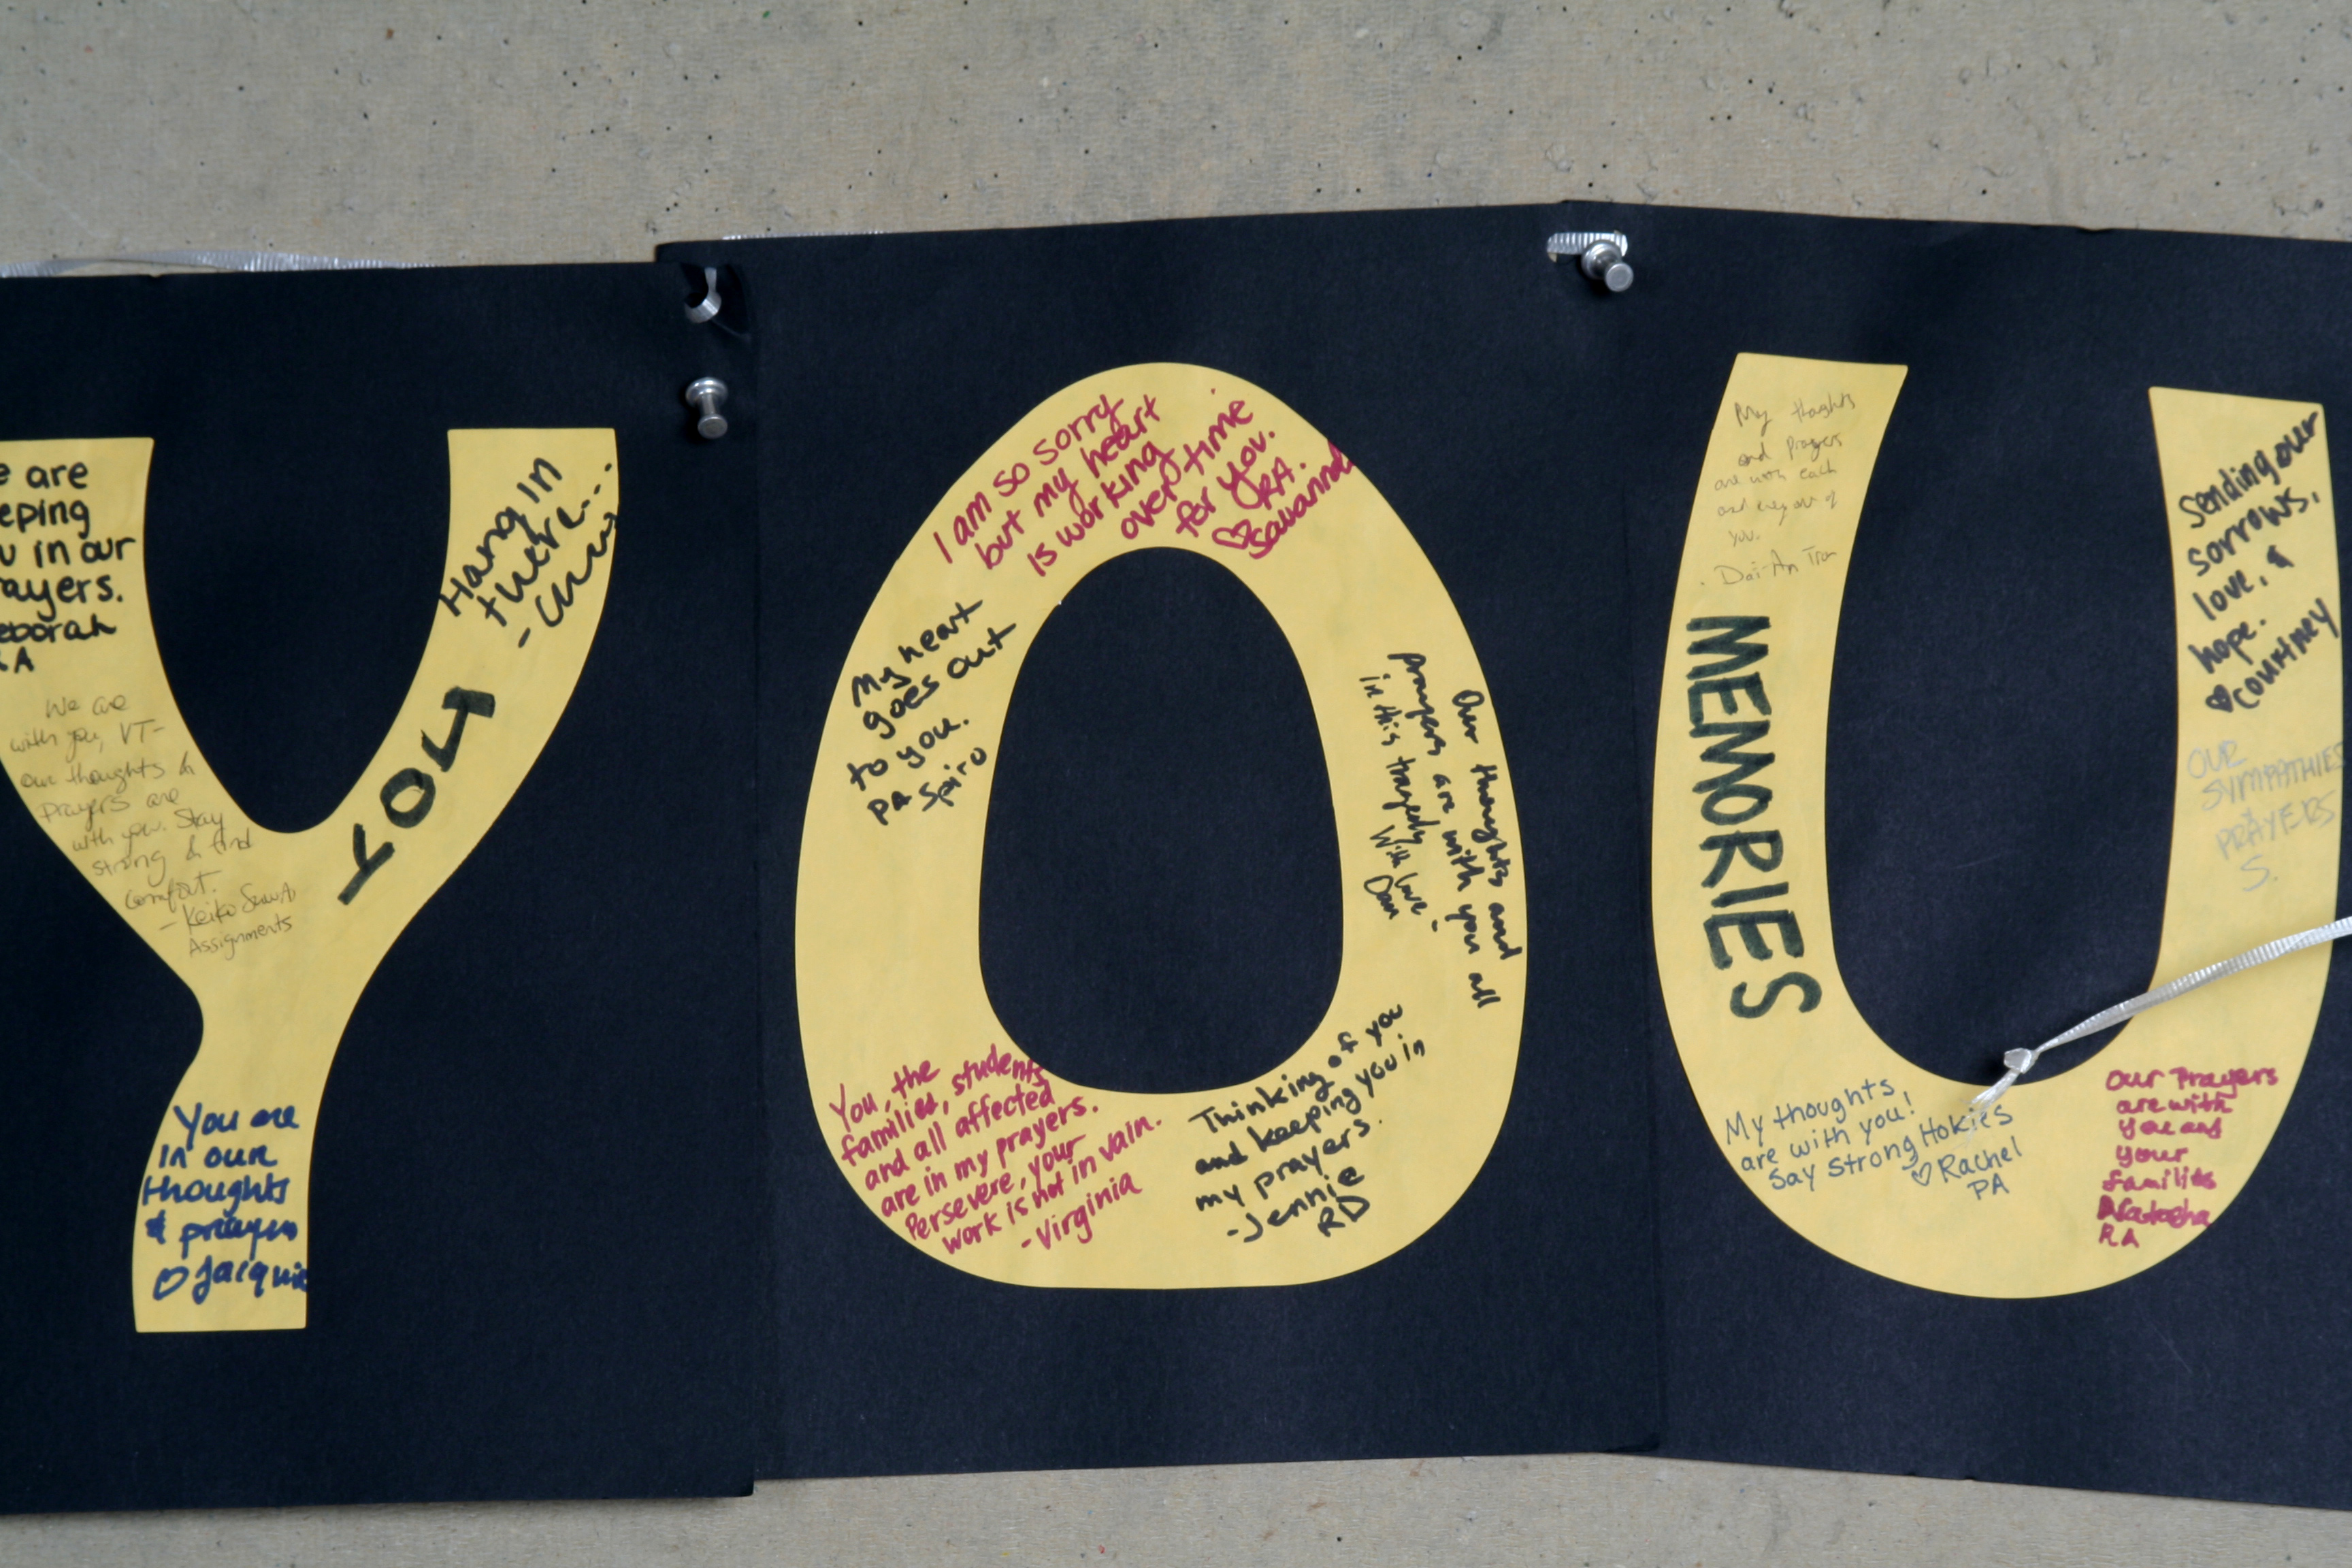 Y
are
eping
u in our
ayers.
eborah
A
We are
with you, VT-
our thoughts &
Prayers are
with you. Stay
strong & find
comfort.
- Keiko
Assignments
Hang in
there...
YOU
You are
in our
thoughts
& prayers
♡ Jacquie
O
I am so sorry
but my heart
is working
over time
for you.
RA.
♡ Savannah
My heart
goes out
to you.
PA Spiro
Our thoughts and
prayers are with you all
in this tragedy
With love -
Dan
You, the
families, students
and all affected
are in my prayers.
Persevere, your
work is not in vain.
- Virginia
Thinking of you
and keeping you in
my prayers.
- Jennie
RD
U
My thoghts
and Prayers
are with each
and every one of
you.
- Dai-An Tran
MEMORIES
My thoughts
are with you!
Say Strong Hokies
♡ Rachel
PA
Sending our
sorrows,
love, &
hope.
♥ Courtney
OUR
SYMPATHIES
&
PRAYERS
S.
Our Prayers
are with
you and
your
families
Natasha
RA